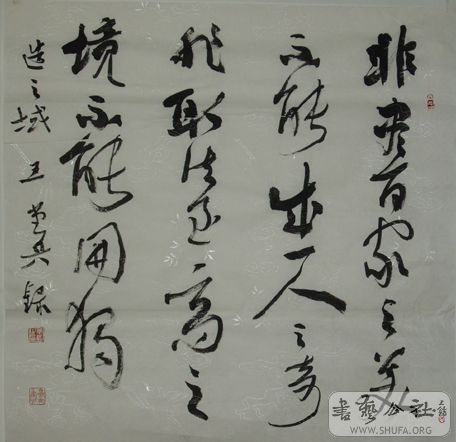 非尽百家之美
不能成一人之奇
非取法至高之
境不能开独
造之域 王登兴録
書藝公社
WWW.SHUFA.ORG